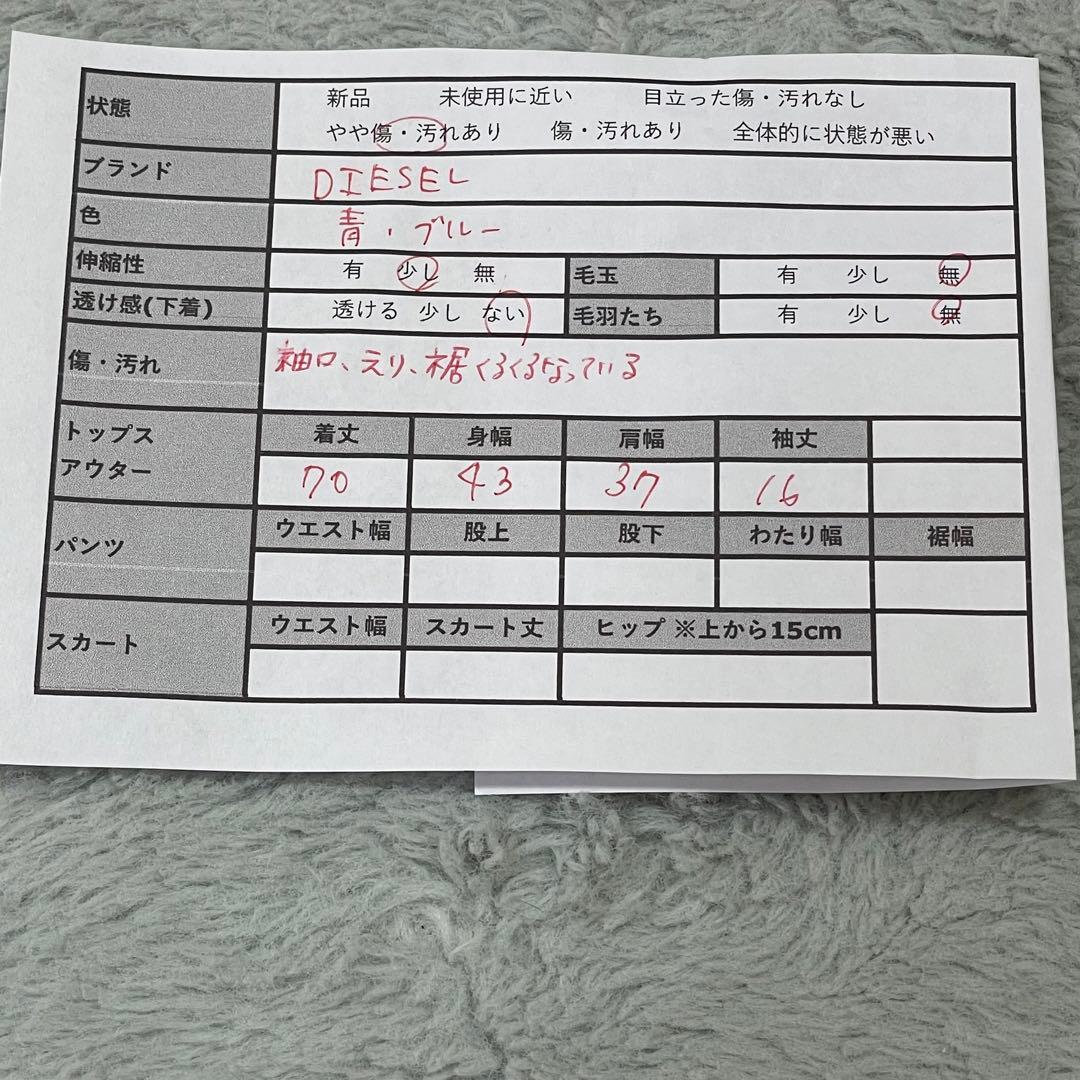 状態 新品 未使用に近い 目立った傷・汚れなし
やや傷・汚れあり 傷・汚れあり 全体的に状態が悪い
ブランド DIESEL
色 青・ブルー
伸縮性 有 少し 無 毛玉 有 少し 無
透け感(下着) 透ける 少し ない 毛羽たち 有 少し 無
傷・汚れ 袖口、えり、裾くるくるなっている
トップス 着丈 身幅 肩幅 袖丈
アウター 70 43 37 16
パンツ ウエスト幅 股上 股下 わたり幅 裾幅
スカート ウエスト幅 スカート丈 ヒップ ※上から15cm